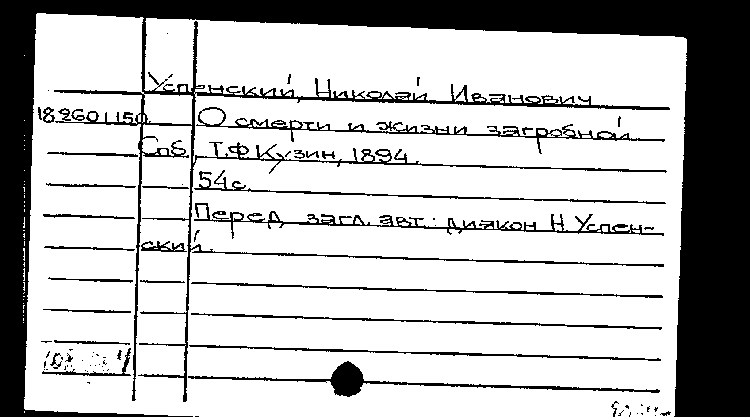 Успенский, Николай Иванович
18.260 1150 О смерти и жизни загробной.
Спб., Т.Ф Кузин, 1894.
54с.
Перед загл. авт.: диакон Н. Успен-
ский.